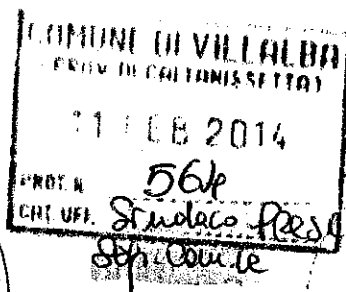 COMUNE DI VILLALBA
(PROV. DI CALTANISSETTA)
11 FEB 2014
PROT. N. 564
CAT. UFF. Sindaco